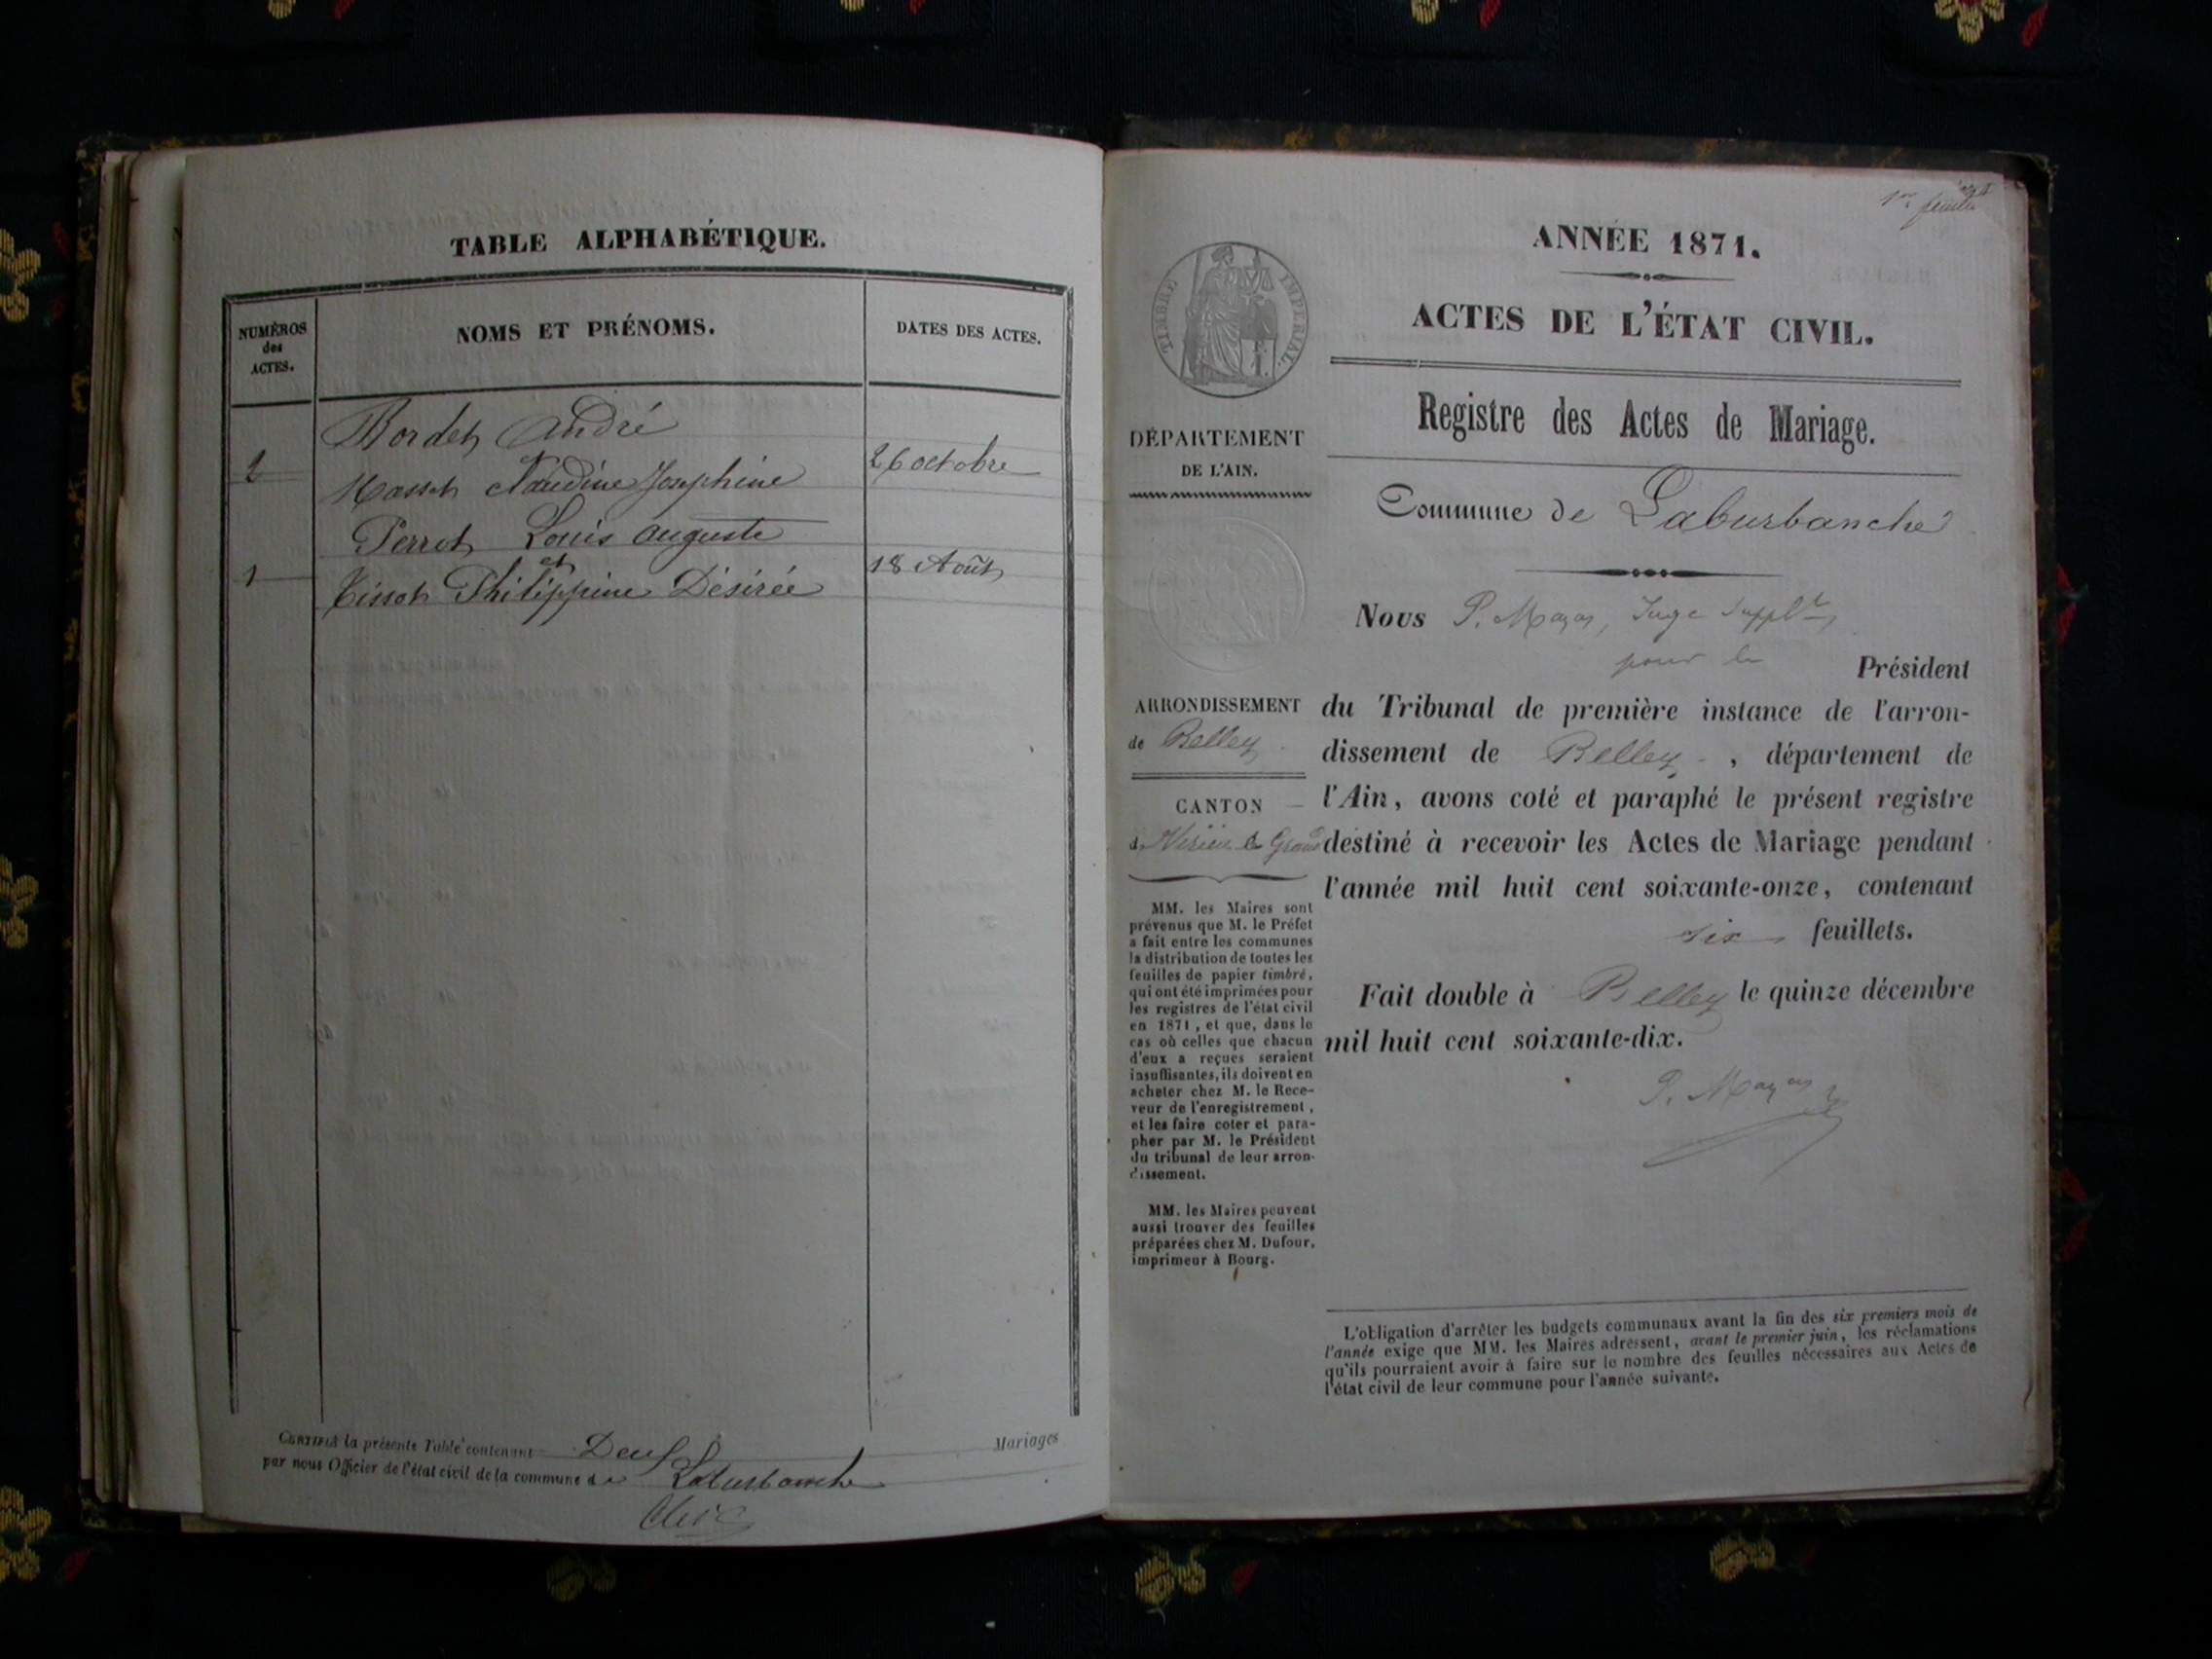 TABLE ALPHABÉTIQUE.
NUMÉROS
des
ACTES.
NOMS ET PRÉNOMS.
DATES DES ACTES.
Bordet André
2
et
26 octobre
Masset Claudine Josephine
Perret Louis Auguste
1
et
18 Août
Tissot Philippine Désirée
CERTIFIÉ la présente Table contenant Deux Mariages
par nous Officier de l'état civil de la commune de Laburbanche
Clerc
1er feuillet
ANNÉE 1871.
ACTES DE L'ÉTAT CIVIL.
TIMBRE IMPERIAL.
Registre des Actes de Mariage.
DÉPARTEMENT
DE L'AIN.
Commune de Laburbanche
Nous P. Mazas, Juge Supplt,
pour le Président
du Tribunal de première instance de l'arron-
dissement de Belley, département de
l'Ain, avons coté et paraphé le présent registre
destiné à recevoir les Actes de Mariage pendant
l'année mil huit cent soixante-onze, contenant
six feuillets.
Fait double à Belley le quinze décembre
mil huit cent soixante-dix.
P. Mazas
ARRONDISSEMENT
de Belley
CANTON
de Virieu le Grand
MM. les Maires sont
prévenus que M. le Préfet
a fait entre les communes
la distribution de toutes les
feuilles de papier timbré,
qui ont été imprimées pour
les registres de l'état civil
en 1871, et que, dans le
cas où celles que chacun
d'eux a reçues seraient
insuffisantes, ils doivent en
acheter chez M. le Rece-
veur de l'enregistrement,
et les faire coter et para-
pher par M. le Président
du tribunal de leur arron-
dissement.
MM. les Maires peuvent
aussi trouver des feuilles
préparées chez M. Dufour,
imprimeur à Bourg.
L'obligation d'arrêter les budgets communaux avant la fin des six premiers mois de
l'année exige que MM. les Maires adressent, avant le premier juin, les réclamations
qu'ils pourraient avoir à faire sur le nombre des feuilles nécessaires aux Actes de
l'état civil de leur commune pour l'année suivante.